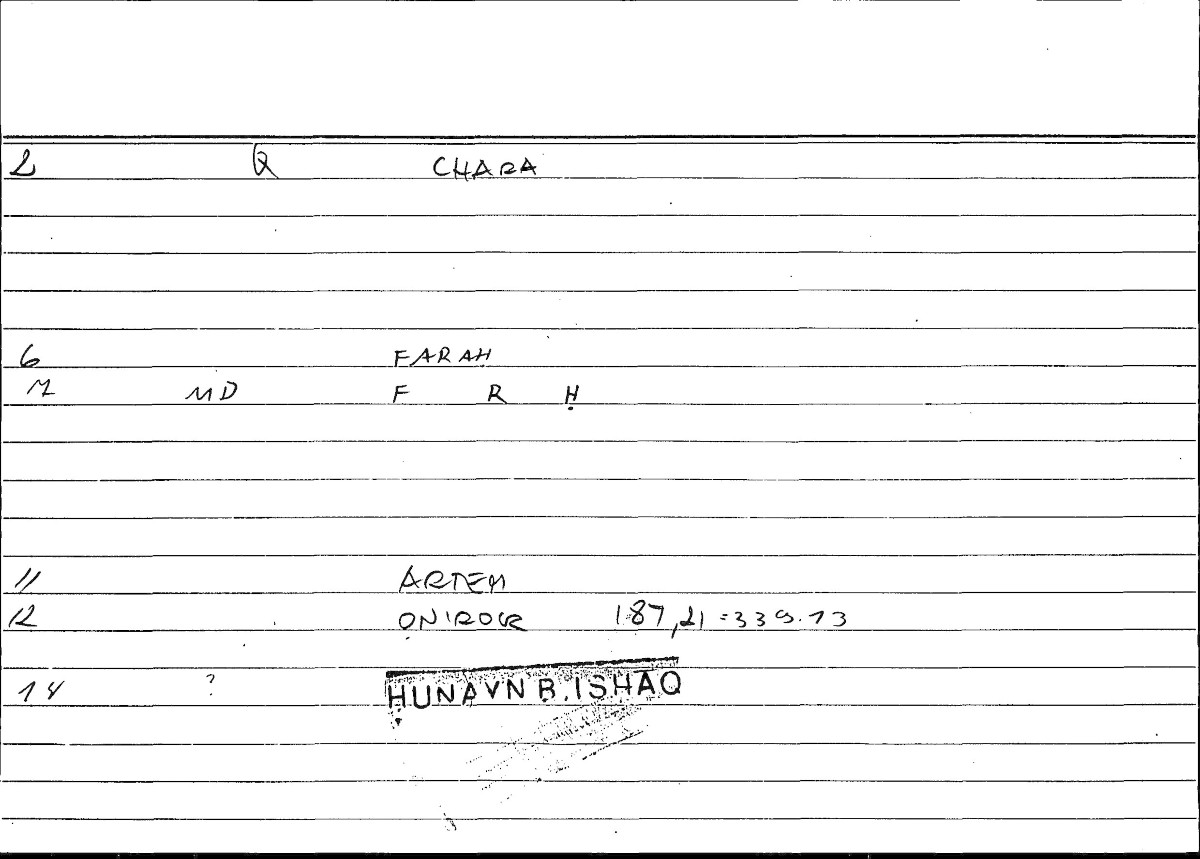 2 Q CHARA
6 FARAH
M MD F R Ḥ
11 ARTEM
12 ONIROCR 187,21 = 339.13
14 ? ḤUNAYN B. ISḤĀQ